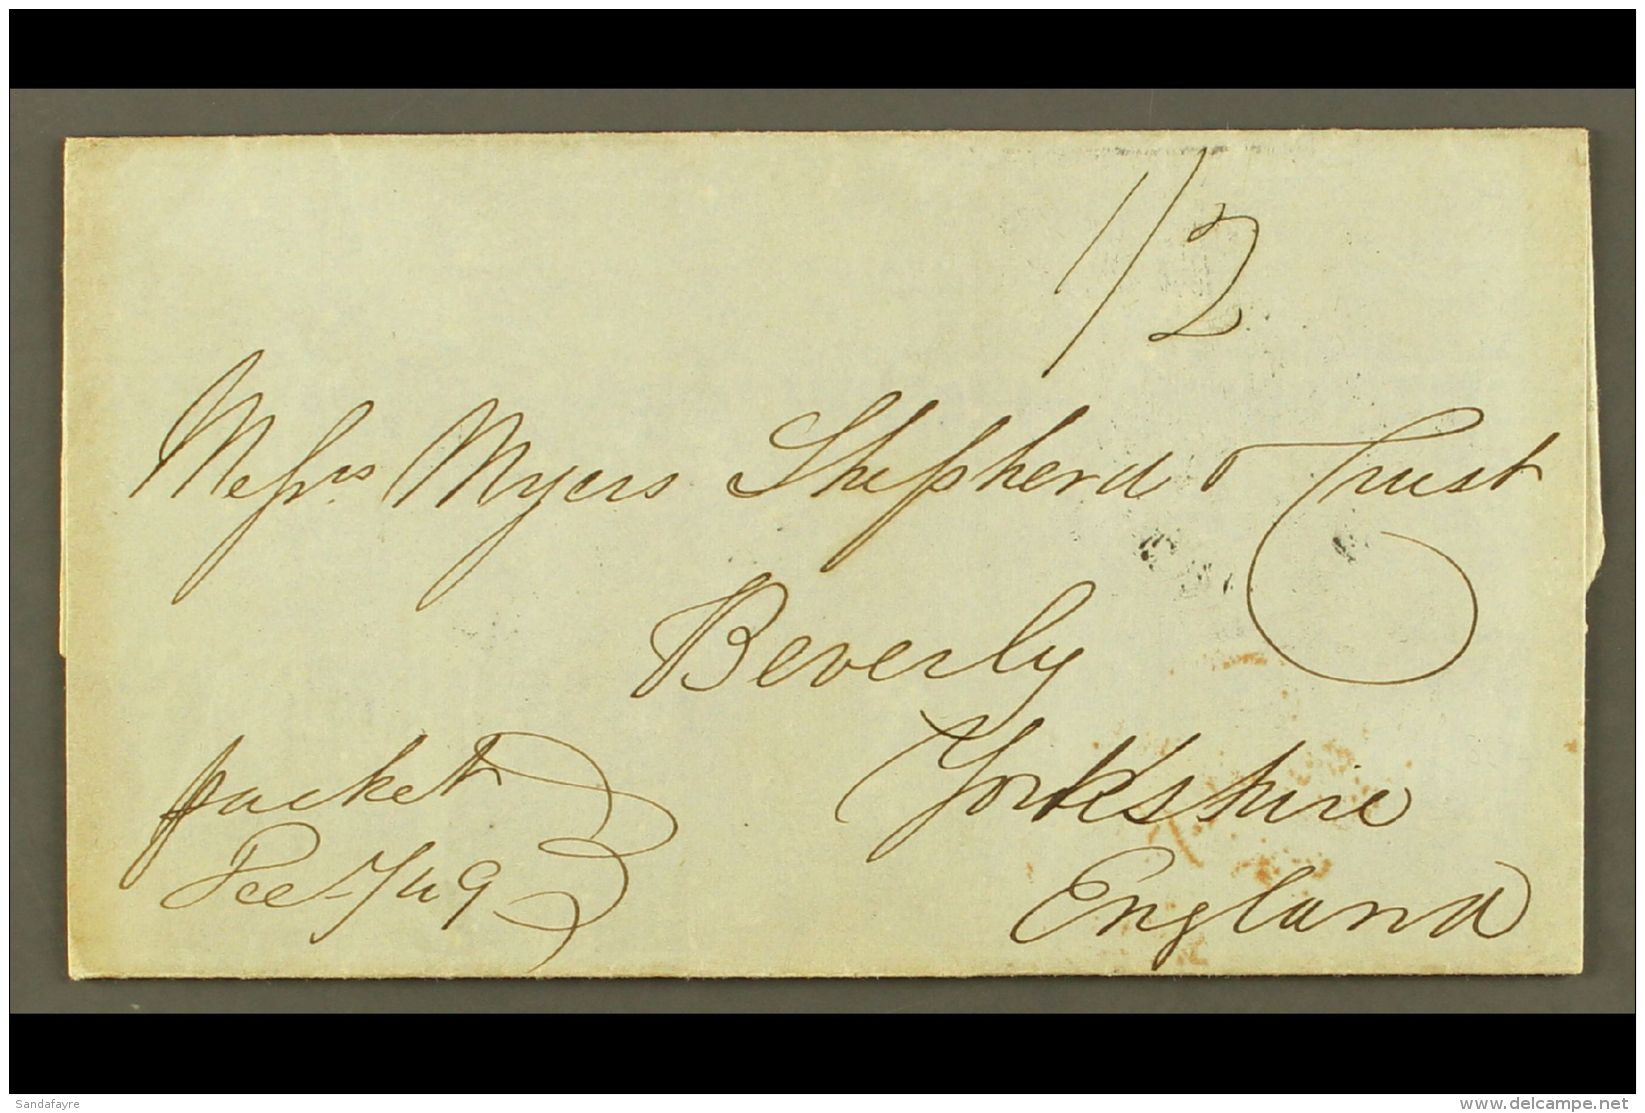 1/2
Messrs Myers Shepherd & Trust
Beverly
Yorkshire
England
packet
Dec 5/49
Sandafayre
www.delcampe.net